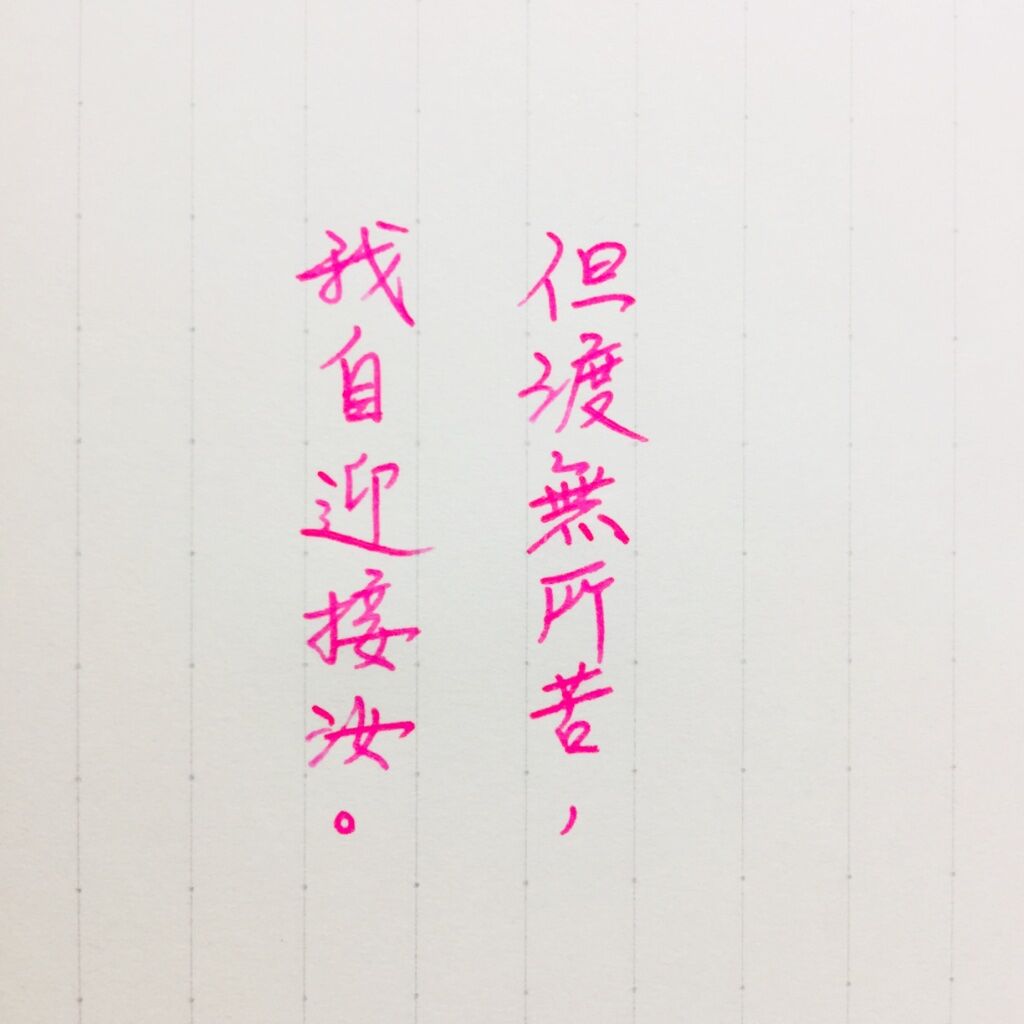 但渡無所苦，
我自迎接汝。